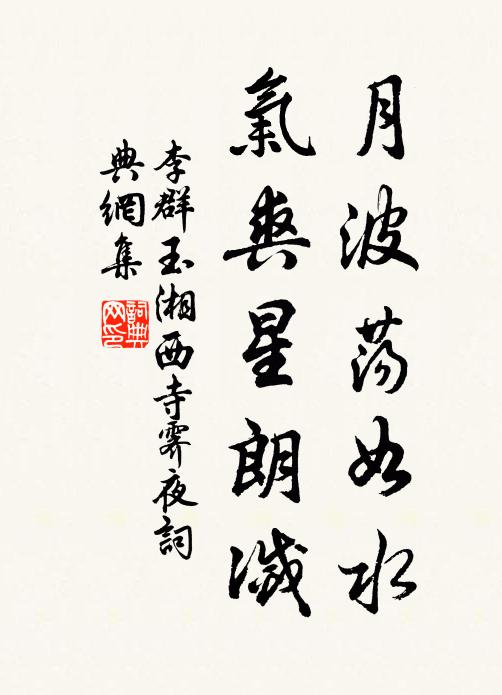 月波蕩如水
氣爽星朗滅
李群玉湘西寺霽夜詞
典網集
詞典
网印